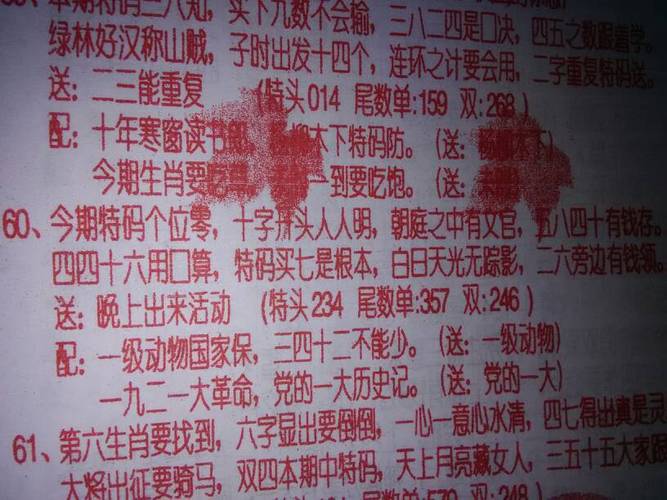 本期特码三八知，买下九数不会输，三八二四是口决，四五之数跟着学。
绿林好汉称山贼，子时出发十四个，连环之计要会用，二字重复特码送。
送：二三能重复 （特头014 尾数单:159 双:268）
配：十年寒窗读书 木下特码防。（送： 天下）
今期生肖要 一到要吃饱。（送：
60、今期特码个位零，十字开头人人明，朝庭之中有文官，五八四十有钱存。
四四十六用口算，特码买七是根本，白日天光无踪影，二六旁边有钱领。
送：晚上出来活动 （特头234 尾数单:357 双:246）
配：一级动物国家保，三四十二不能少。（送：一级动物）
一九二一大革命，党的一大历史记。（送：党的一大）
61、第六生肖要找到，六字显出要倒倒，一心一意心水清，四七得出真是灵
大将出征要骑马，双四本期中特码，天上月亮藏女人，三五十五大家